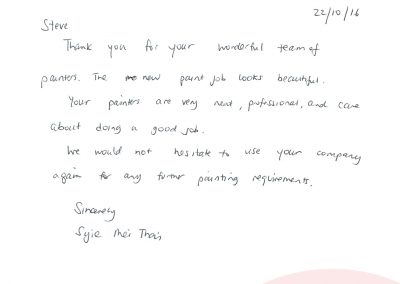 22/10/16
Steve
Thank you for your wonderful team of
painters. The new paint job looks beautiful.
Your painters are very neat, professional, and care
about doing a good job.
We would not hesitate to use your company
again for any further painting requirements.
Sincerely